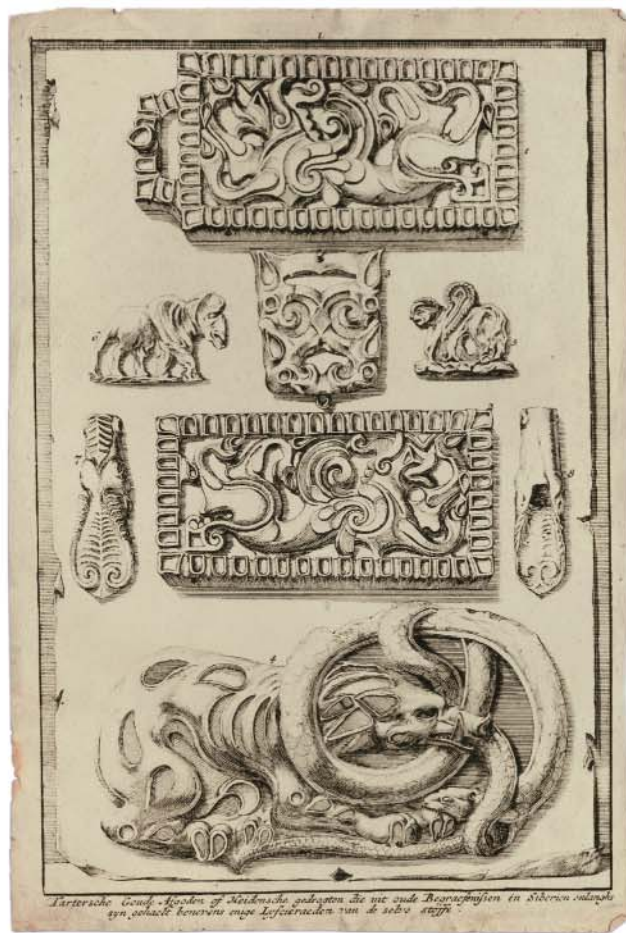 1.
2
4.
7
8
Tartersche Goude Afgoden of Heidensche gedrogten die uit oude Begraefenissen in Siberien onlanghs
zyn gehaelt benevens enige Lyfcieraeden van de zelve stoffe